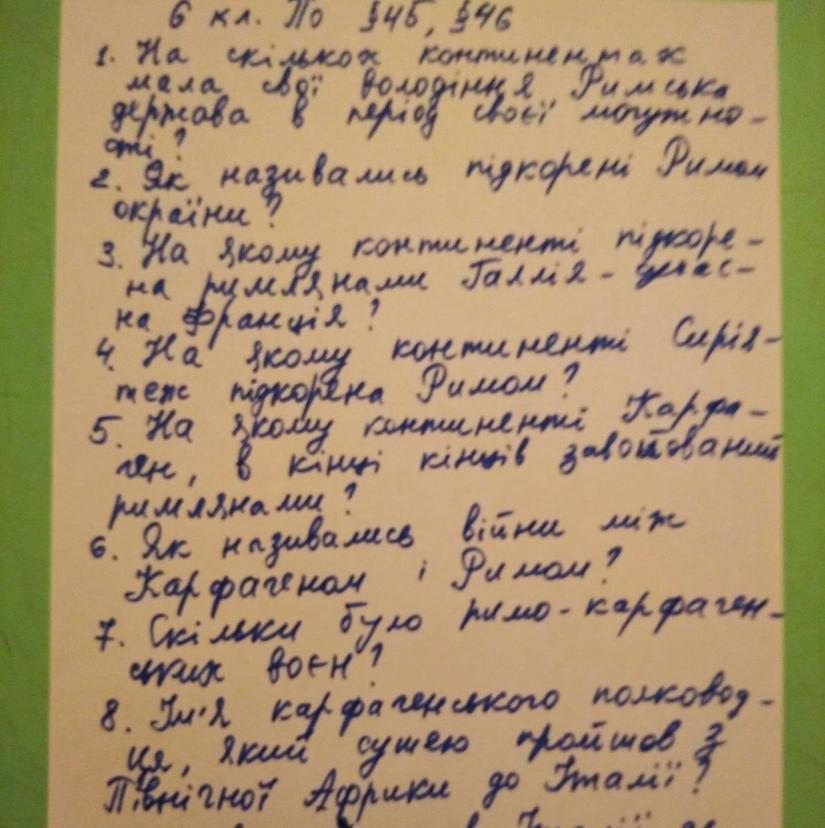 6 кл. По §45, §46
1. На скількох континентах
мала свої володіння Римська
держава в період своєї могутно-
сті?
2. Як називались підкорені Римом
окраїни?
3. На якому континенті підкоре-
на римлянами Галлія - сучас-
на Франція?
4. На якому континенті Сирія-
теж підкорена Римом?
5. На якому континенті Карфа-
ген, в кінці кінців завойований
римлянами?
6. Як називались війни між
Карфагеном і Римом?
7. Скільки було римо-карфаген-
ських воєн?
8. Ім'я карфагенського полковод-
ця, який сушею пройшов з
Північної Африки до Італії?